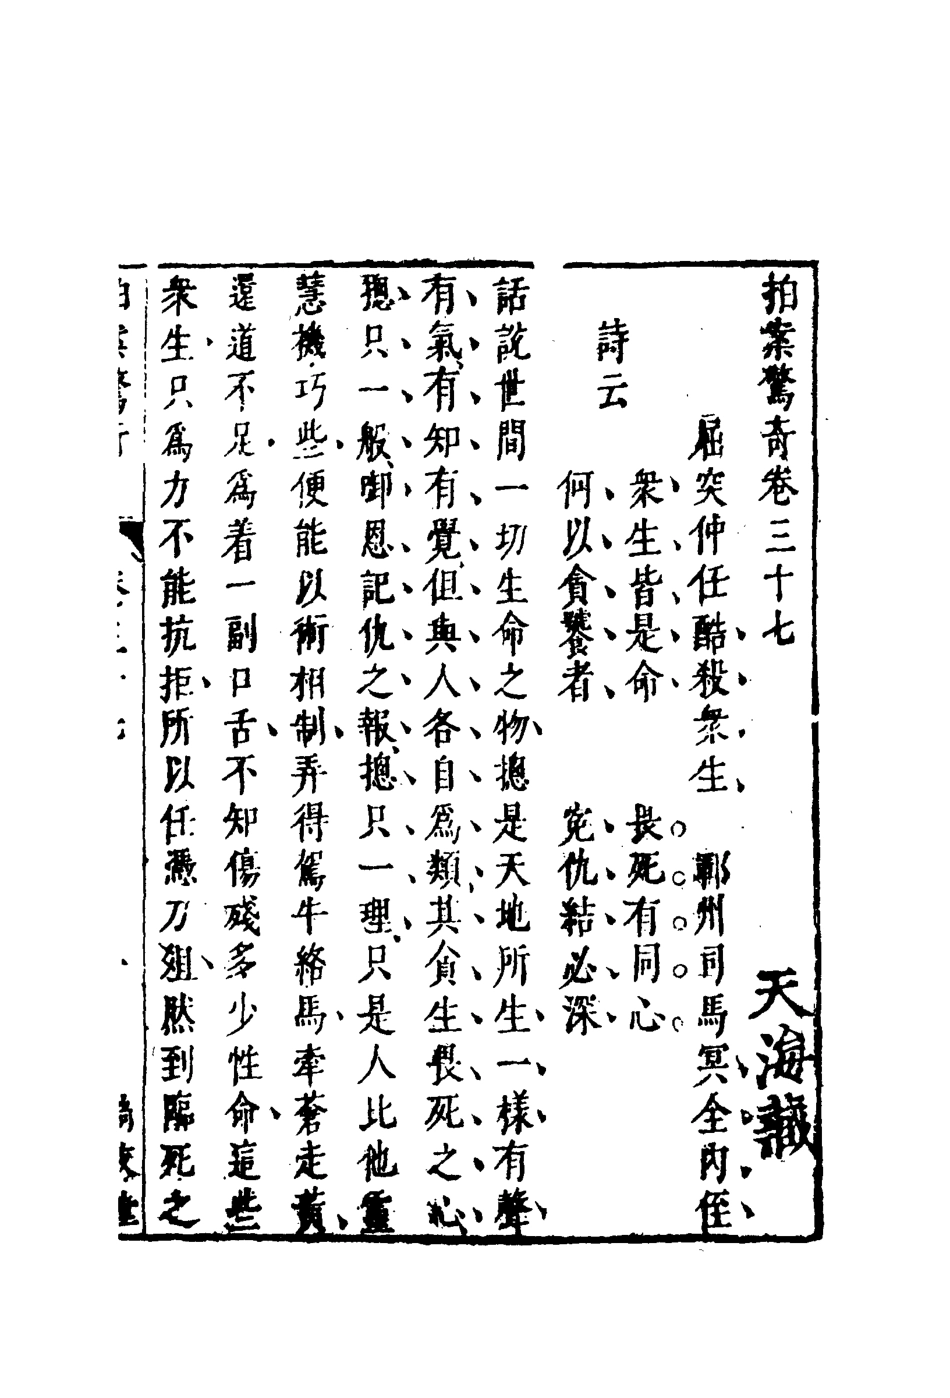 拍案驚奇卷三十七
天海藏
屈突仲任酷殺衆生 鄆州司馬冥全內侄
詩云
衆生皆是命 畏死有同心
何以貪饕者 寃仇結必深
話說世間一切生命之物摠是天地所生一樣有聲
有氣有知有覺但與人各自爲類其貪生畏死之心
摠只一般啣恩記仇之報摠只一理只是人比他靈
慧機巧些便能以術相制弄得駕牛絡馬牽蒼走黃
還道不足爲着一副口舌不知傷殘多少性命這些
衆生只爲力不能抗拒所以任憑刀俎然到臨死之